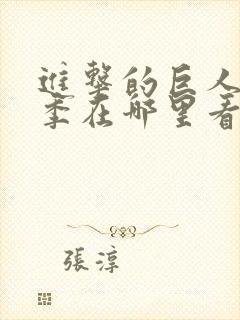 進擊的巨人
季在哪里看
張淳